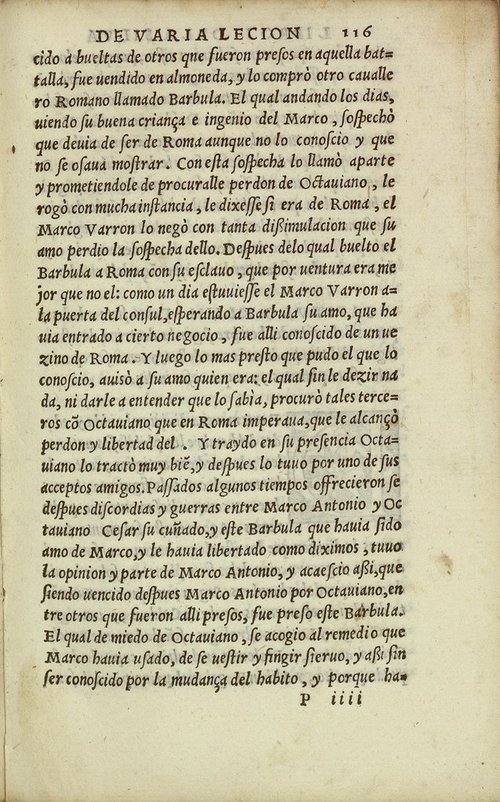 DE VARIA LECION 116
cido a bueltas de otros qne fueron presos en aquella bat-
talla, fue uendido en almoneda, y lo comprò otro caualle
ro Romano llamado Barbula. El qual andando los dias,
uiendo su buena criança e ingenio del Marco, sospechò
que deuia de ser de Roma aunque no lo conoscio y que
no se osaua mostrar. Con esta sospecha lo llamò aparte
y prometiendole de procuralle perdon de Octauiano, le
rogò con mucha instancia, le dixesse si era de Roma, el
Marco Varron lo negò con tanta dißimulacion que su
amo perdio la sospecha dello. Despues delo qual buelto el
Barbula a Roma con su esclauo, que por uentura era me
jor que no el: como un dia estuuiesse el Marco Varron a-
la puerta del consul, esperando a Barbula su amo, que ha
uia entrado a cierto negocio, fue alli conoscido de un ue
zino de Roma. Y luego lo mas presto que pudo el que lo
conoscio, auisò a su amo quien era: el qual sin le dezir na
da, ni darle a entender que lo sabia, procurò tales terce-
ros cõ Octauiano que en Roma imperaua, que le alcançò
perdon y libertad del. Y traydo en su presencia Octa-
uiano lo tractò muy biẽ, y despues lo tuuo por uno de sus
acceptos amigos. Passados algunos tiempos offrecieron se
despues discordias y guerras entre Marco Antonio y Oc
tauiano Cesar su cuñado, y este Barbula que hauia sido
amo de Marco, y le hauia libertado como diximos, tuuo
la opinion y parte de Marco Antonio, y acaescio aßi, que
siendo uencido despues Marco Antonio por Octauiano, en
tre otros que fueron alli presos, fue preso este Barbula.
El qual de miedo de Octauiano, se acogio al remedio que
Marco hauia usado, de se uestir y fingir sieruo, y aßi sin
ser conoscido por la mudança del habito, y porque ha-
P iiii